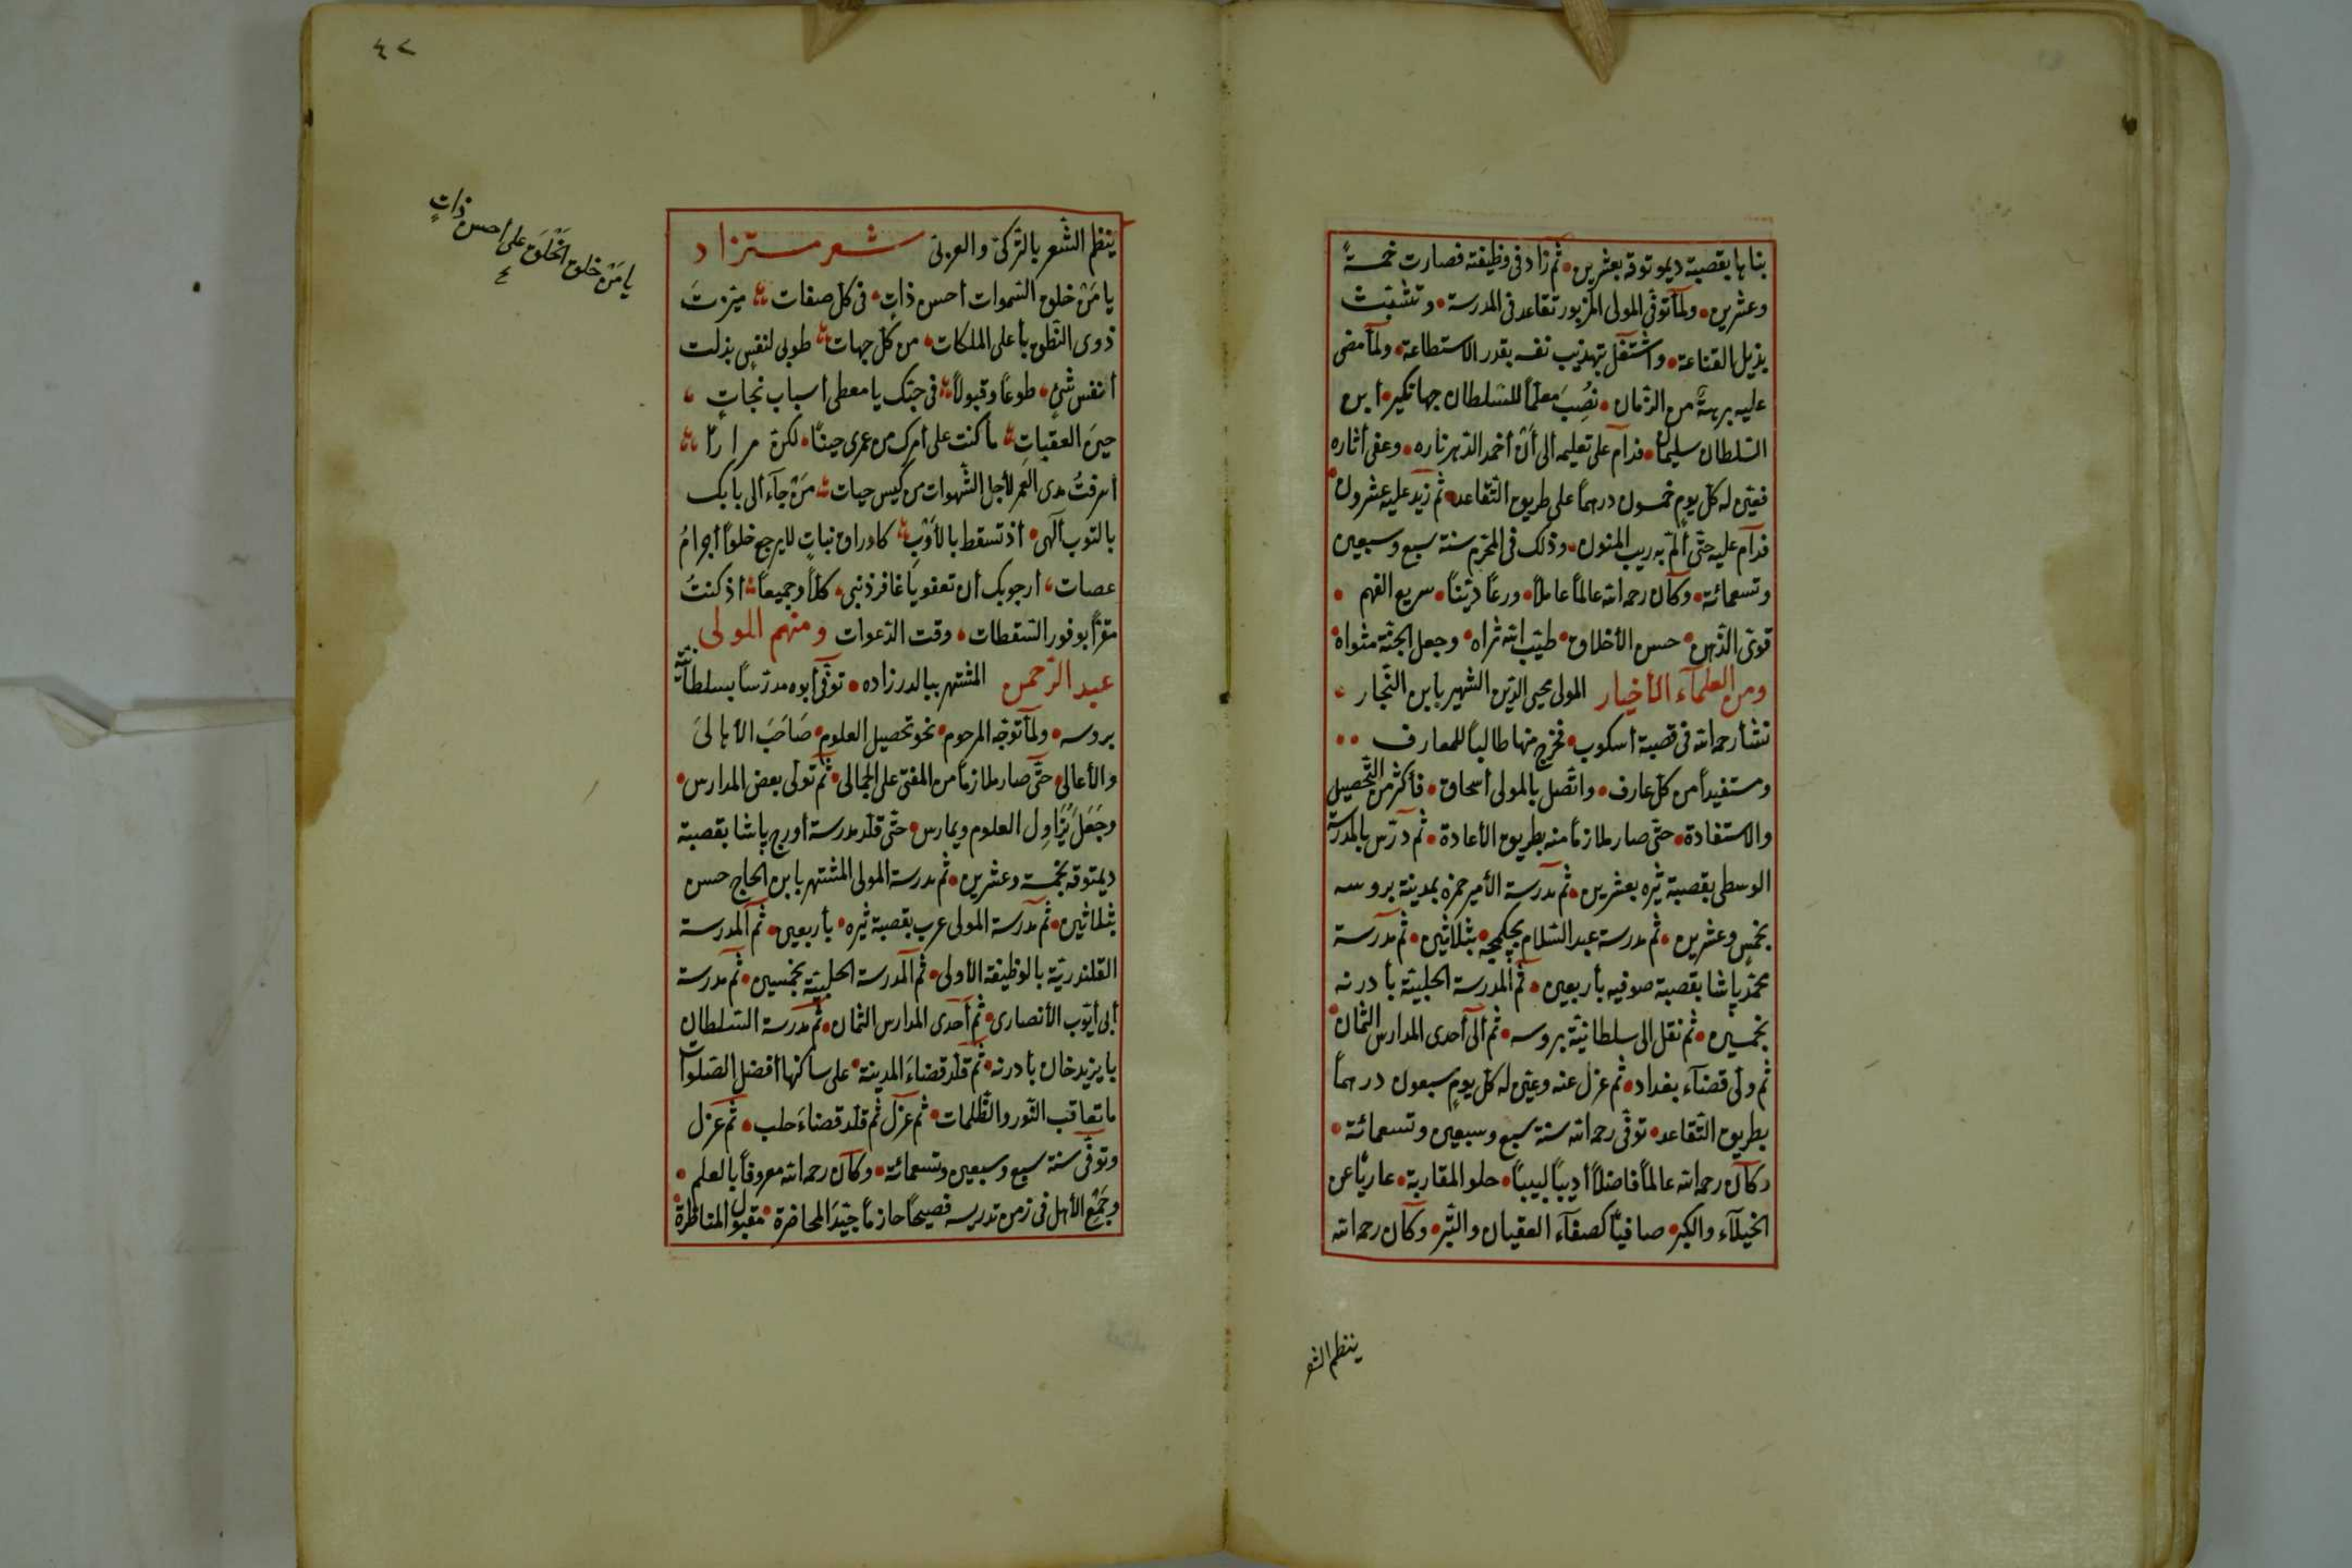 بناها بقصبة ديموتوقه بعشرين • ثم زاد فى وظيفته فصارت خمسةً
وعشرين • ولمّا توفّى المولى المزبور تقاعد فى المدرسة • وتشبّث
بذيل القناعة • واشتغل بتهذيب نفسه بقدر الاستطاعة • ولمّا مضى
عليه برهةٌ من الزّمان • نُصِبَ معلّماً للسّلطان جهانكير • ابن
السّلطان سليمان • فدآم على تعليمه الى أن أخمد الدّهر ناره • وعفى أثاره
فعيّن له كلّ يومٍ خمسون درهماً على طريق التّقاعد • ثم زيد عليه عشرون
فدآم عليه حتّى ألمّ به ريب المنون • وذلك فى المحرّم سنة سبع وسبعين
وتسعمائة • وكآن رحمه الله عالماً عاملاً • ورعاً ديّناً • سريع الفهم •
قوىّ الذّهن • حسن الأخلاق • طيّب الله ثراه • وجعل الجنّة مثواه
ومن العلمآء الأخيار المولى محيى الدّين الشهير بابن النّجار
نشأ رحمه الله فى قصبة أسكوب • فخرج منها طالباً للمعارف ••
ومستفيداً من كلّ عارف • واتّصل بالمولى أسحاق • فأكثر من التّحصيل
والاستفادة • حتّى صار ملازماً منه بطريق الأعادة • ثم درّس بالمدرسة
الوسطى بقصبة تيره بعشرين • ثم مدرسة الأمير حمزه بمدينة بروسه
بخمسٍ وعشرين • ثم مدرسة عبد السّلام بچكمجه • بثلاثين • ثم مدرسة
محمّد پاشا بقصبة صوفيه بأربعين • ثم المدرسة الحلبيّة بأدرنه
بخمسين • ثم نقل الى سلطانيّة بروسه • ثم الى أحدى المدارس الثمان •
ثم ولّى قضآء بغداد • ثم عزل عنه وعيّن له كلّ يومٍ سبعون درهماً
بطريق التّقاعد • توفّى رحمه الله سنة سبع وسبعين وتسعمائة •
وكآن رحمه الله عالماً فاضلاً أديباً لبيباً • حلو المقاربة • عارياً عن
الخيلآء والكبر • صافياً كصفآء العقيان والتّبر • وكآن رحمه الله
ينظم الشعر
٤٢
ينظم الشّعر بالتّركىّ والعربىّ شعر مستزاد
يا مَنْ خلق السّموات أحسن ذاتٍ • فى كلّ صفات ميّزتَ
ذوى النّطق بأعلى الملكات • من كلّ جهات طوبى لنفسٍ بذلت
أنفس شئٍ • طوعاً وقبولاً فى حبّك يا معطى أسباب نجاتٍ
حين العقبات ما كنت على أمرك من عمرى حيناً • لكن مراراً
أسرفتُ مدى العمر لأجل الشّهوات من كيس حيات مَنْ جآء الى بابك
بالتّوب ألهى • أذ تسقط بالأوْبِ كاوراق نباتٍ لا يرجع خلواً أجرامُ
عصات • أرجو بك أن تعفو يا غافر ذنبى • كلّاً وجميعاً أذ كنتُ
مقرّاً بوفور السّقطات • وقت الدّعوات ومنهم المولى
عبد الرّحمن المشتهر ببالدر زاده • توفّى أبوه مدرّساً بسلطانيّة
بروسه • ولمّا توجّه المرحوم • نحو تحصيل العلوم • صَاحَبَ الأهالىَ
والأعالى • حتّى صار ملازماً من المفتى على الجمالى • ثم تولّى بعض المدارس •
وجَعَلَ يُزَاوِل العلوم ويمارس • حتّى قلّد مدرسة أورج پاشا بقصبة
ديمتوقه بخمسة وعشرين • ثم مدرسة المولى المشتهر بابن الحاج حسن
بثلاثين • ثم مدرسة المولى عرب بقصبة تيره • بأربعين • ثم المدرسة
القلندريّة بالوظيفة الأولى • ثم المدرسة الحلبيّة بخمسين • ثم مدرسة
أبى أيّوب الأنصارى • ثم أحدى المدارس الثمان • ثم مدرسة السّلطان
بايزيد خان بأدرنه • ثم قلّد قضاءَ المدينة • على ساكنها أفضل الصّلوات
ما تعاقب النّور والظّلمات • ثم عزل ثم قلّد قضاءَ حلب • ثم عزل
وتوفّى سنة سبع وسبعين وتسعمائة • وكآن رحمه الله معروفاً بالعلم •
وجَمْعِ الأهل فى زمن تدريسه فصيحاً حازماً جيّدَ المحاضرة • مقبول المناظرة •
يا مَنْ خلق الخَلْقَ على أحسن ذاتٍ